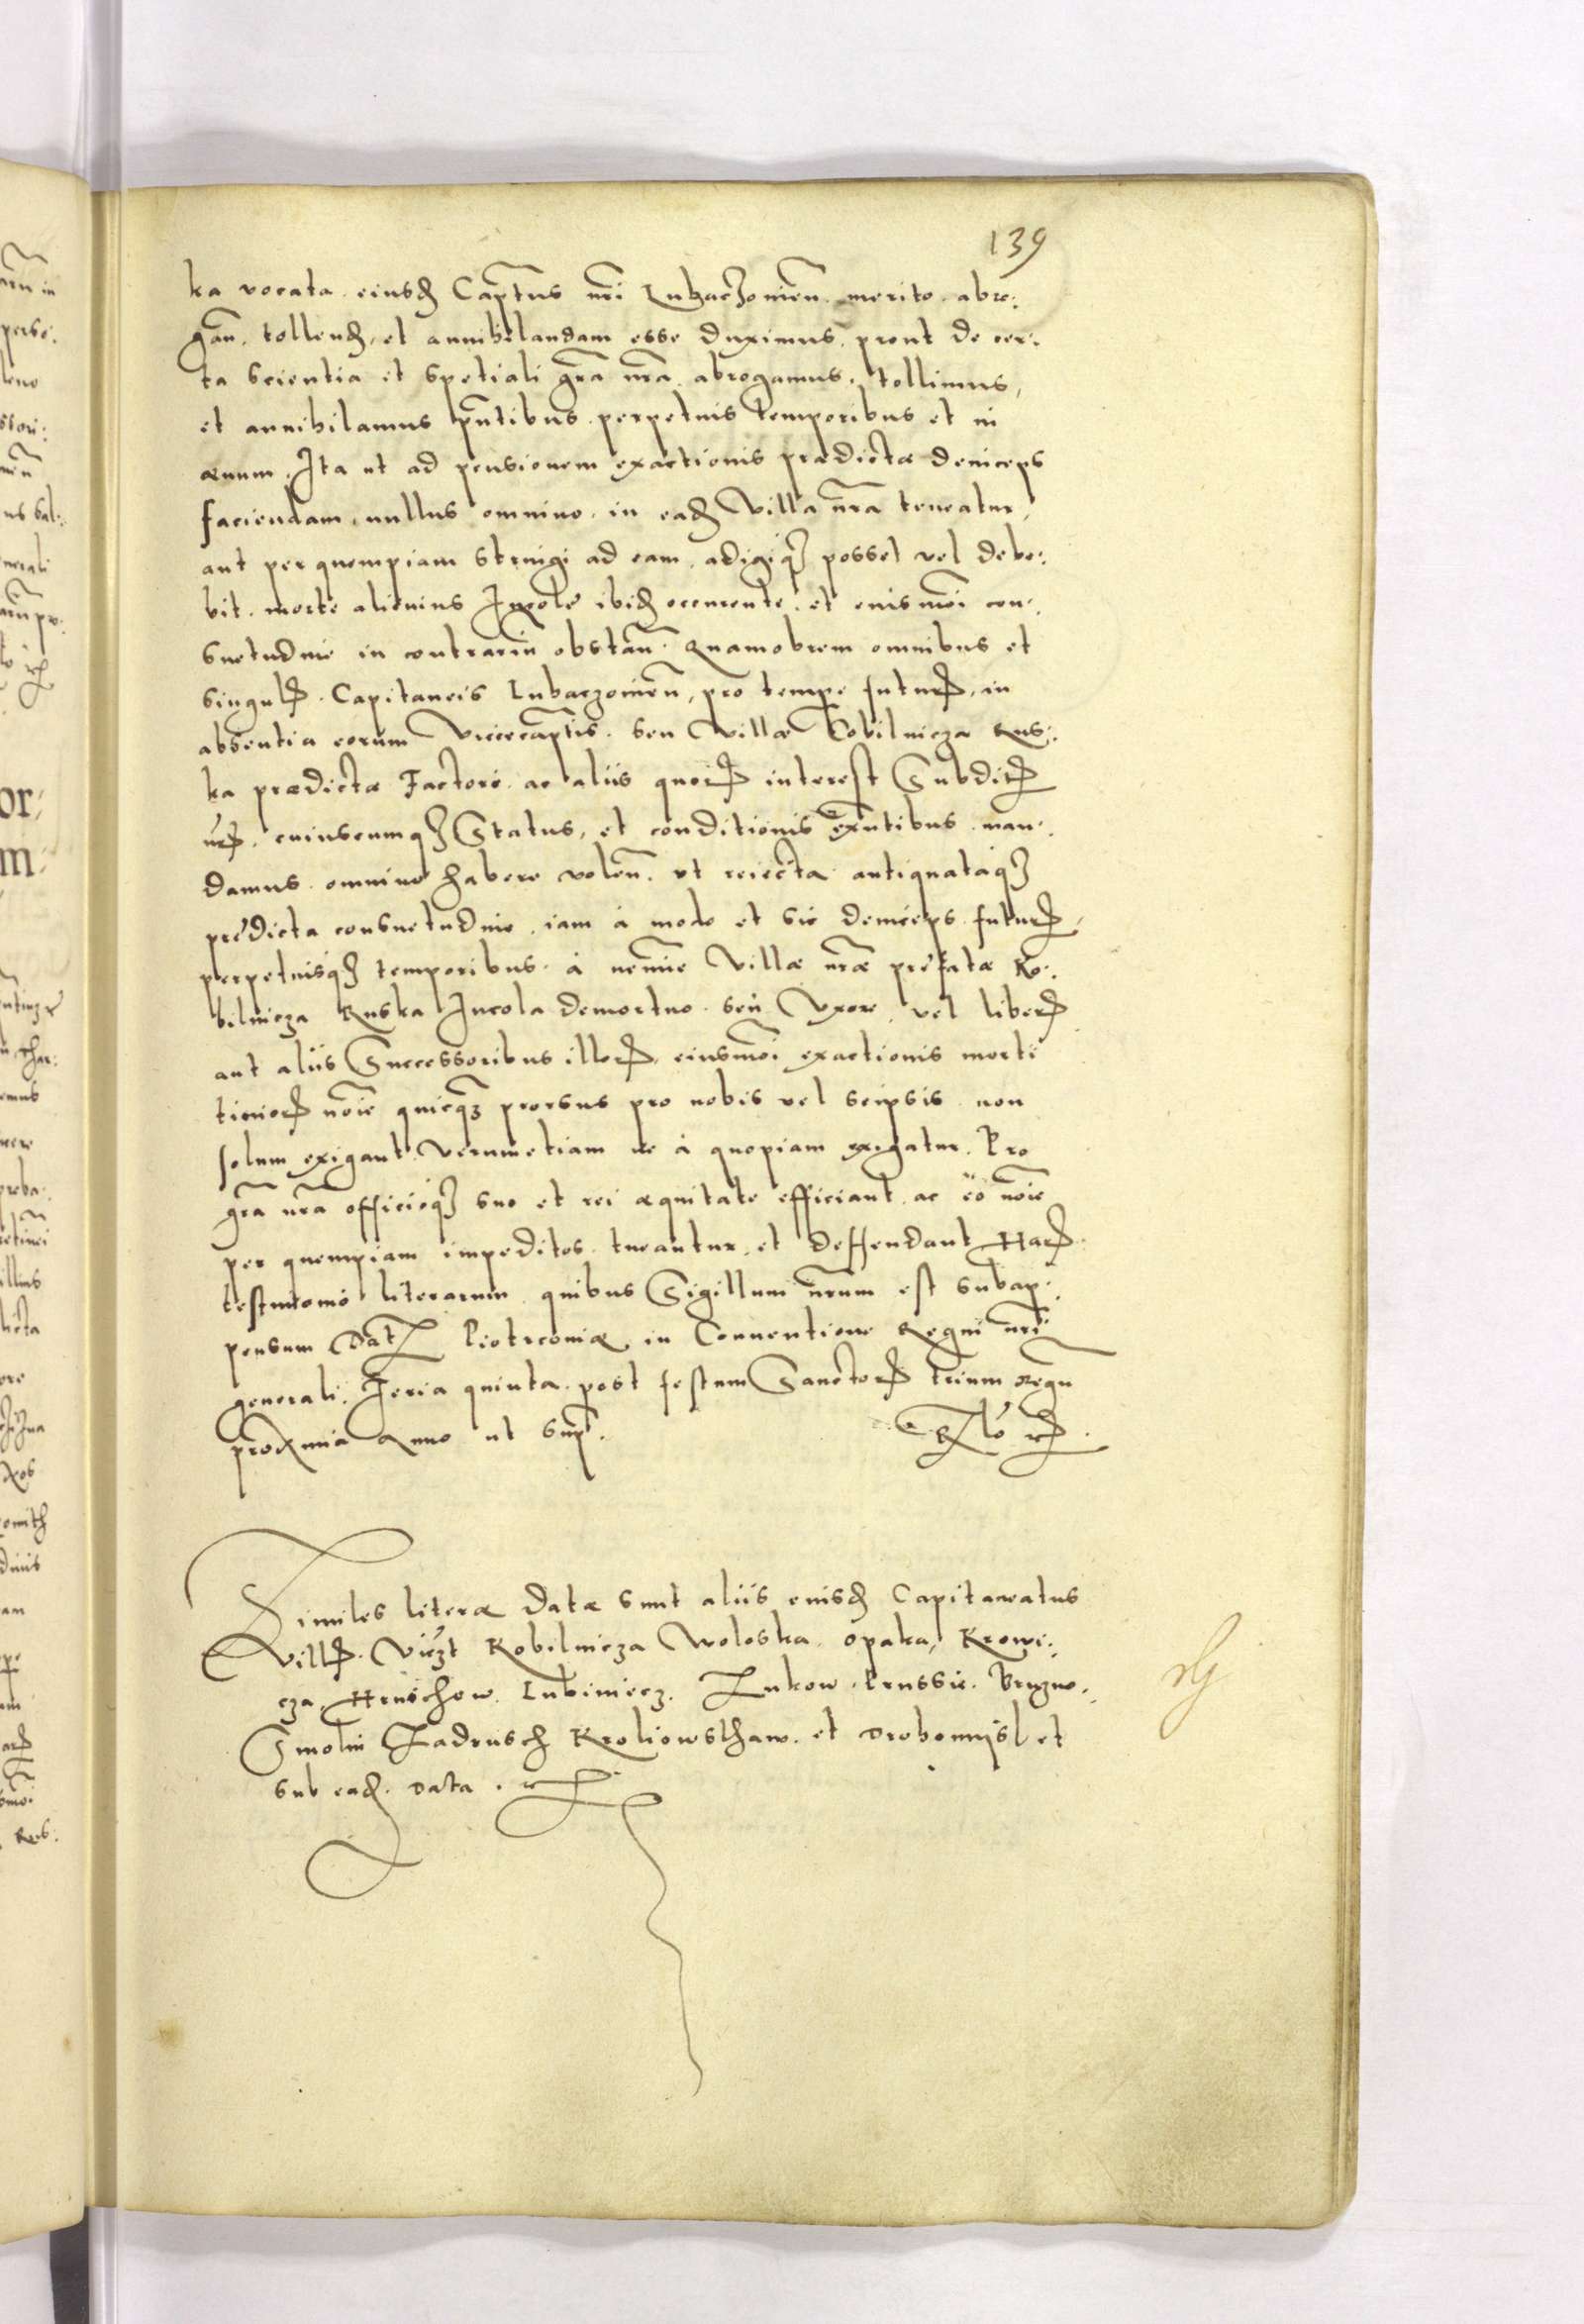 139
ka vocata eiusđ Capt̃us nr̃i Lubaczouien̄ merito abro:
gan̄. tollenđ, et annihilandam esse duximus, prout de cer:
ta scientia et spetiali grã nrã abrogamus, tollimus,
et annihilamus pñtibus perpetuis temporibus et in
æuum. Ita ut ad pensionem exactionis prædictæ deniceps
faciendam, nullus omnino in eađ Villa nrã teneatur,
aut per quempiam stringi ad eam adigiq₃ posset vel debe:
bit. morte alicuius Incolę ibiđ occurrente. et eiusmõi con:
suetudine in contrariũ obstan̄. Quamobrem omnibus et
singul̃. Capitaneis Lubaczouien̄, pro tempe futur̃, in
absentia eorum Vicecap̃tis. seu Villæ Cobilnicza Rus:
ka prædictæ Factori ac aliis quor̃ interest Subdit̃
nr̃. cuiuscumq₃ Status, et conditionis exñtibus. man:
damus omnino habere volen̄. ut reiecta antiquataq₃
prędicta consuetudine, iam à modo et sic deniceps futur̃,
perpetuisq₃ temporibus. à nemĩe Villæ nræ̃ pręfatæ Ko:
bilnicza Ruska Incola demortuo. seu Vxore, vel liber̃
aut aliis Successoribus illor̃, eiusmõi exactionis morti
ticinior̃ nõie quicq₃ prorsus pro nobis vel seipsis non
solum exigant. Verumetiam ne à quopiam exigatur. Pro
grã nrã officioq₃ suo et rei æquitate efficiant ac eo nõie
per quempiam impeditos tueantur, et deffendant Har̃.
testimonio literarum quibus Sigillum nr̃um est subap:
pensum Dat̃ Piotrcouiæ in Conuentione Regni nr̃i
generali. Feria quinta post festum Sanctor̃ trium regũ
proxima Anno ut sup̃.
Similes literæ datæ sunt aliis eiusđ Capitaneatus
Vill̃. Vicz̃t Kobilnicza Woloska, Opaka, Krowi:
cza. Hruschow. Lubiniecz. Lukow. Prussie. Bruzno.
Smolin Zadrusch Kroliowsthaw. et Drohomysl et
sub eađ. data.